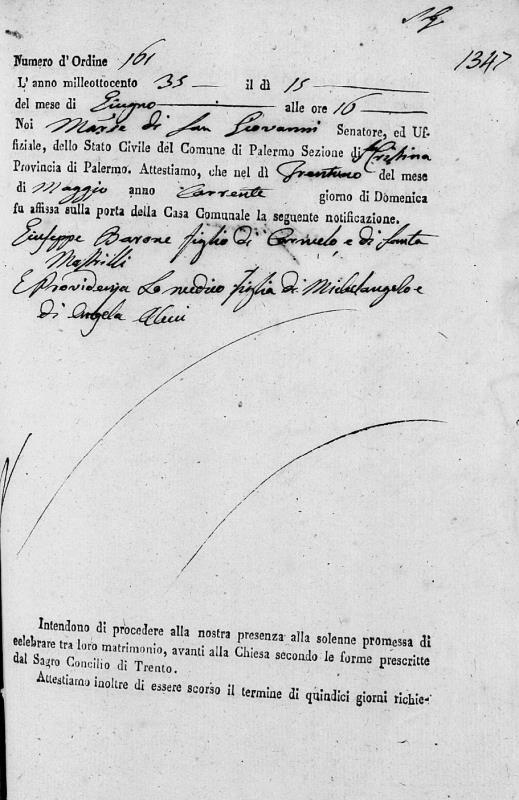 1347
Numero d' Ordine 161
L' anno milleottocento 35 il dì 15
del mese di Giugno alle ore 16
Noi Marse di San Giovanni Senatore, ed Uf-
fiziale, dello Stato Civile del Comune di Palermo Sezione di Sta Cristina
Provincia di Palermo. Attestiamo, che nel dì Trentuno del mese
di Maggio anno Corrente giorno di Domenica
fu affissa sulla porta della Casa Comunale la seguente notificazione.
Giuseppe Barone figlio di Carmelo, e di Santa
Mastrilli
E Providenza Lo medico figlia di Michelangelo e
di Angela
Intendono di procedere alla nostra presenza alla solenne promessa di
celebrare tra loro matrimonio, avanti alla Chiesa secondo le forme prescritte
dal Sagro Concilio di Trento.
Attestiamo inoltre di essere scorso il termine di quindici giorni richie-